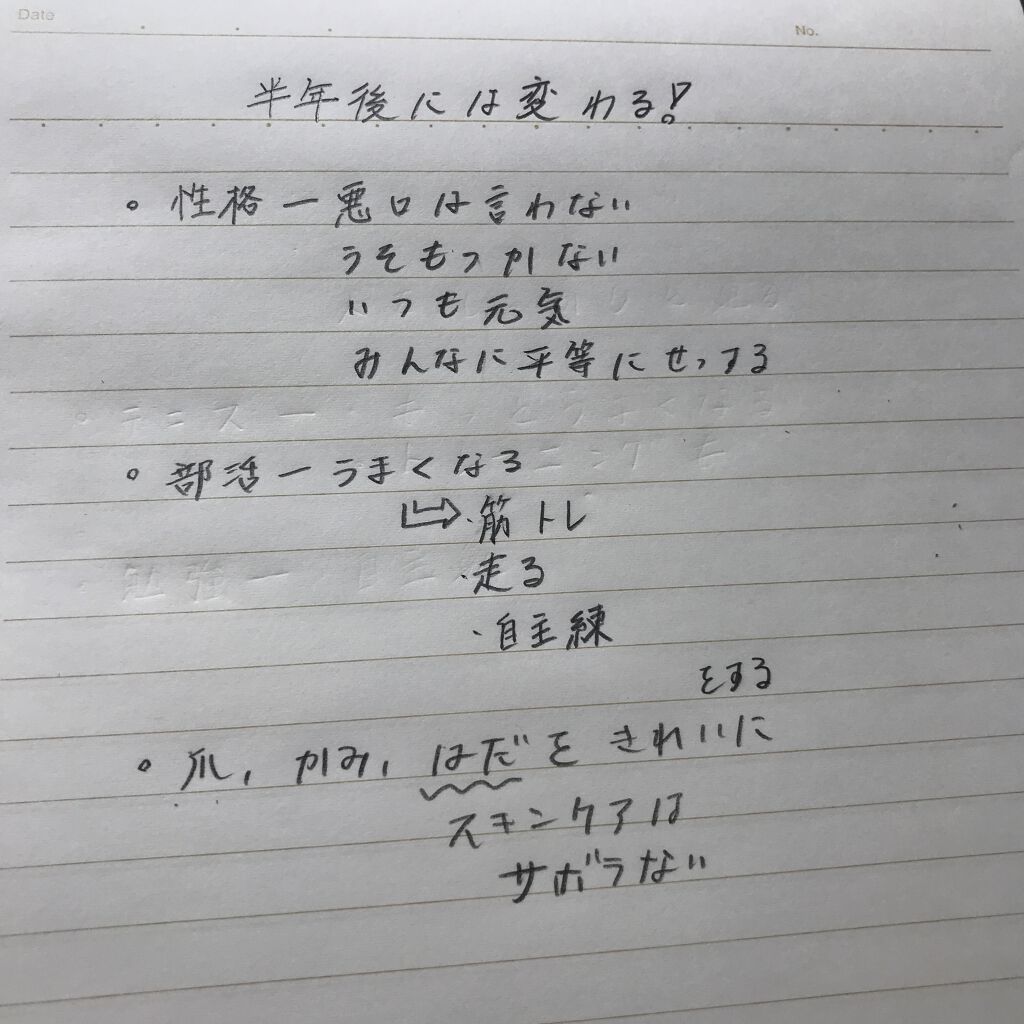 Date
No.
半年後には変わる!
。性格ー悪口は言わない
うそもつかない
いつも元気
みんなに平等にせっする
。部活ーうまくなる
・筋トレ
・走る
・自主練
をする
。爪,かみ,はだをきれいに
スキンケアは
サボらない